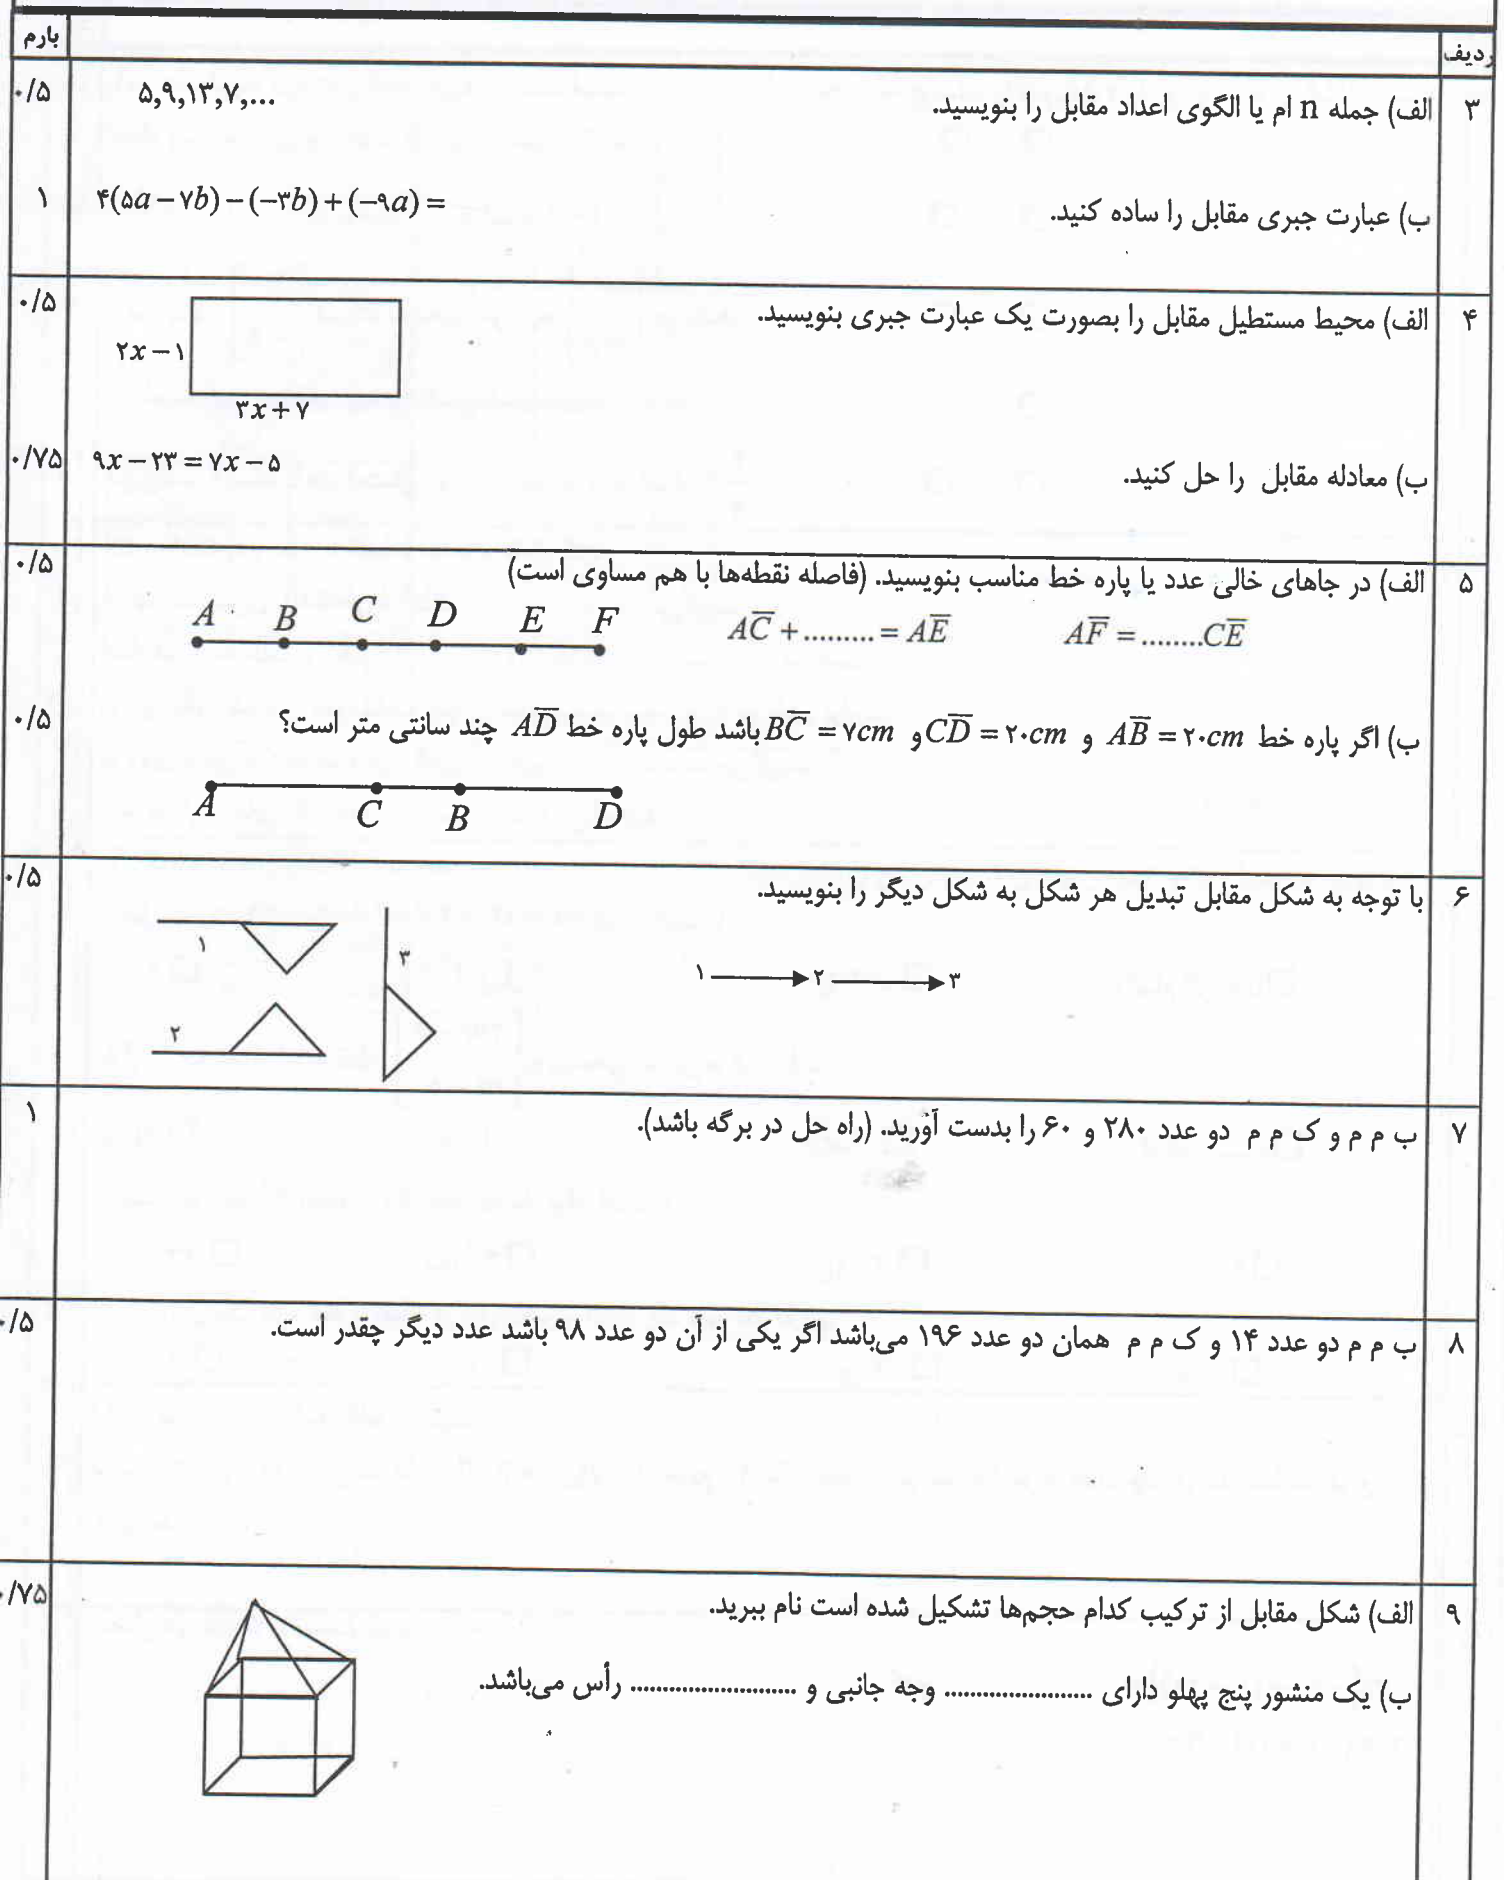 ردیف بارم
۳ الف) جمله n ام یا الگوی اعداد مقابل را بنویسید. ۵,۹,۱۳,۷,... ۰/۵
ب) عبارت جبری مقابل را ساده کنید. ۴(۵a − ۷b) − (−۳b) + (−۹a) = ۱
۴ الف) محیط مستطیل مقابل را بصورت یک عبارت جبری بنویسید. ۰/۵
۲x − ۱
۳x + ۷
ب) معادله مقابل را حل کنید. ۹x − ۲۳ = ۷x − ۵ ۰/۷۵
۵ الف) در جاهای خالی عدد یا پاره خط مناسب بنویسید. (فاصله نقطه‌ها با هم مساوی است) ۰/۵
A B C D E F
AC̅ + ......... = AE̅ AF̅ = ........CE̅
ب) اگر پاره خط AB̅ = ۲۰cm و CD̅ = ۲۰cm و BC̅ = ۷cm باشد طول پاره خط AD̅ چند سانتی متر است؟ ۰/۵
A C B D
۶ با توجه به شکل مقابل تبدیل هر شکل به شکل دیگر را بنویسید. ۰/۵
۱ ۳
۱ ⟶ ۲ ⟶ ۳
۲
۷ ب م م و ک م م دو عدد ۲۸۰ و ۶۰ را بدست آورید. (راه حل در برگه باشد). ۱
۸ ب م م دو عدد ۱۴ و ک م م همان دو عدد ۱۹۶ می‌باشد اگر یکی از آن دو عدد ۹۸ باشد عدد دیگر چقدر است. ۰/۵
۹ الف) شکل مقابل از ترکیب کدام حجم‌ها تشکیل شده است نام ببرید. ۰/۷۵
ب) یک منشور پنج پهلو دارای ....................... وجه جانبی و .......................... رأس می‌باشد.